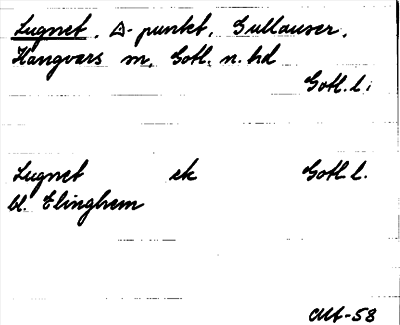 Lugnet, △-punkt, Gullauser,
Hangvars sn, Gotl. n. hd
Gotl. l.
Lugnet ek Gotl. l.
bl. Elinghem
-58